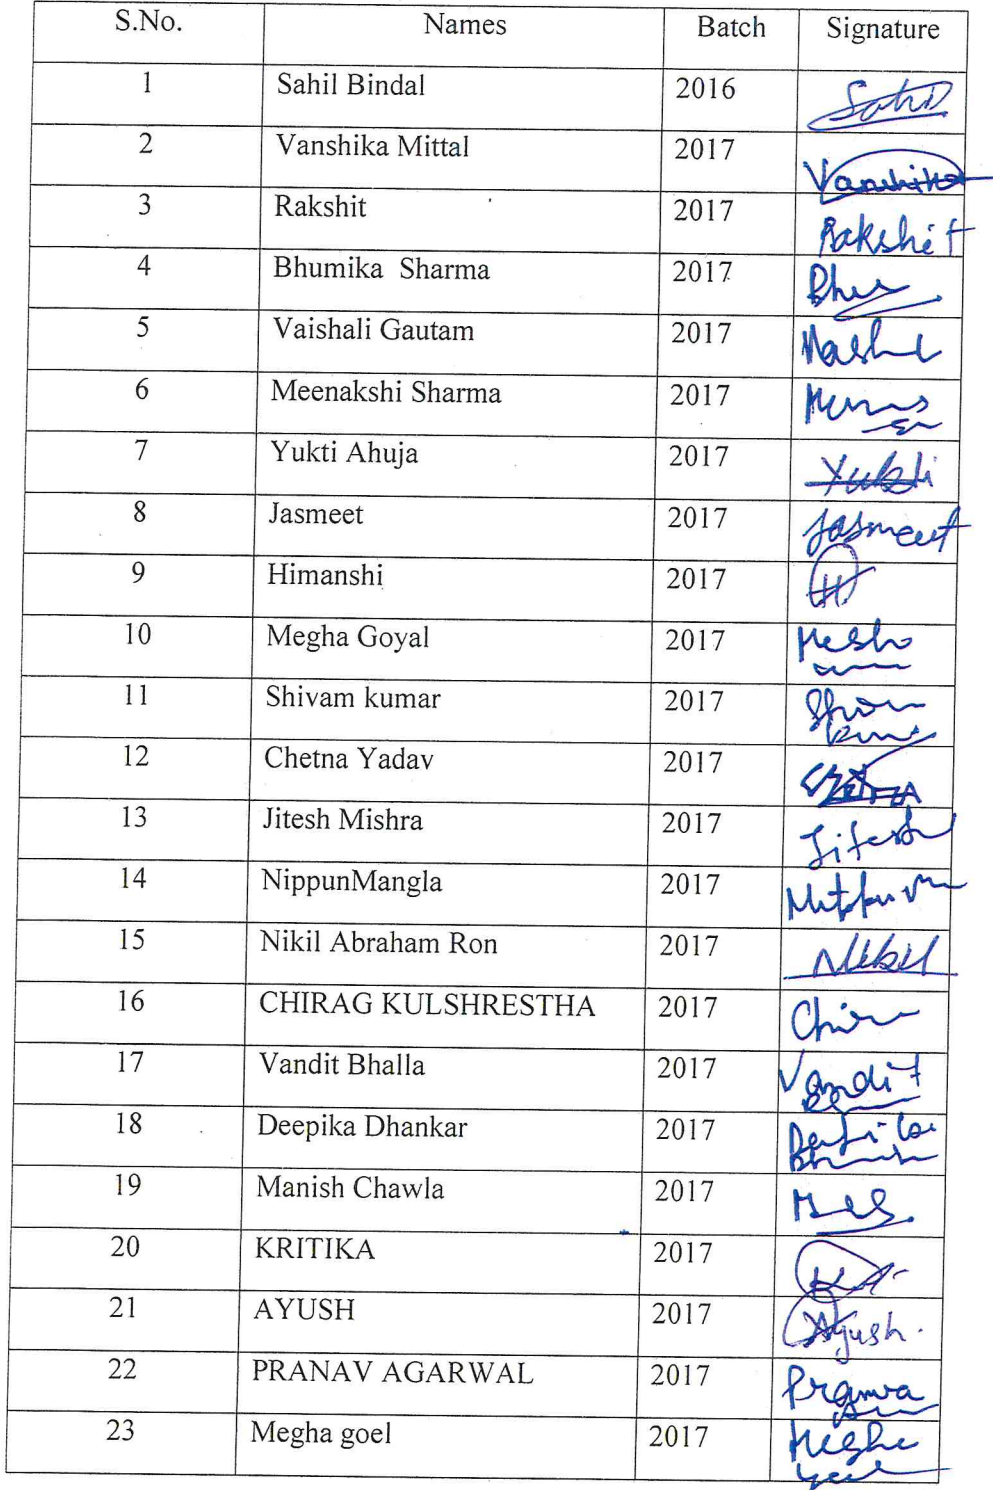 S.No. Names Batch Signature
1 Sahil Bindal 2016 Sahil
2 Vanshika Mittal 2017 Vanshika
3 Rakshit 2017 Rakshit
4 Bhumika Sharma 2017
5 Vaishali Gautam 2017
6 Meenakshi Sharma 2017
7 Yukti Ahuja 2017 Yukti
8 Jasmeet 2017 Jasmeet
9 Himanshi 2017 H
10 Megha Goyal 2017
11 Shivam kumar 2017
12 Chetna Yadav 2017
13 Jitesh Mishra 2017 Jitesh
14 NippunMangla 2017
15 Nikil Abraham Ron 2017 Nikil
16 CHIRAG KULSHRESTHA 2017
17 Vandit Bhalla 2017 Vandit
18 Deepika Dhankar 2017
19 Manish Chawla 2017
20 KRITIKA 2017
21 AYUSH 2017 Ayush.
22 PRANAV AGARWAL 2017
23 Megha goel 2017